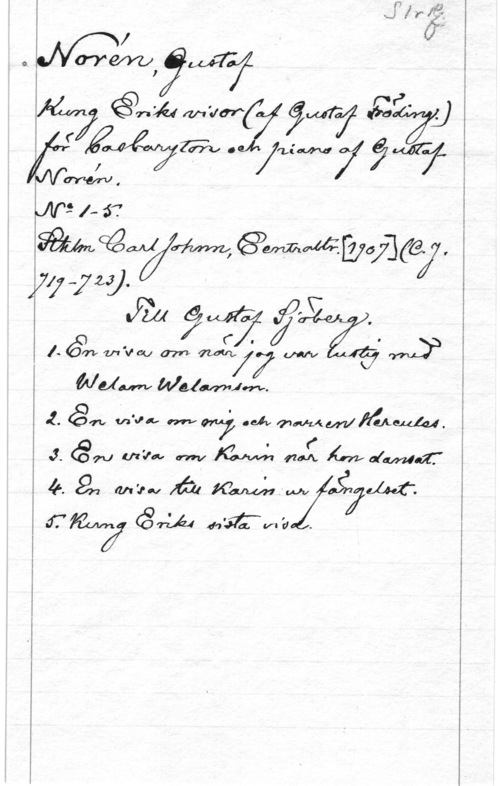 Norén, Gustaf
Kung Eriks visor (af Gustaf Fröding.)
för basbaryton och piano af Gustaf
Norén.
Nº 1-5.
Sthlm Carl Johnn, Centraltr. [1907] (C. J.
719-723).
Till Gustaf Sjöberg.
1. En visa om när jag var lustig med
Welam Welamson.
2. En visa om mig och narren Hercules.
3. En visa om Karin när hon dansat.
4. En visa till Karin ur fängelset.
5. Kung Eriks sista visa.